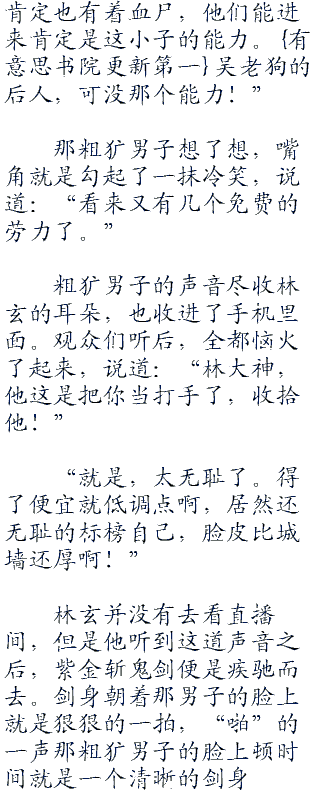 肯定也有着血尸，他们能进
来肯定是这小子的能力。{有
意思书院更新第一}吴老狗的
后人，可没那个能力！”
那粗犷男子想了想，嘴
角就是勾起了一抹冷笑，说
道：“看来又有几个免费的
劳力了。”
粗犷男子的声音尽收林
玄的耳朵，也收进了手机里
面。观众们听后，全都恼火
了起来，说道：“林大神，
他这是把你当打手了，收拾
他！”
“就是，太无耻了。得
了便宜就低调点啊，居然还
无耻的标榜自己，脸皮比城
墙还厚啊！”
林玄并没有去看直播
间，但是他听到这道声音之
后，紫金斩鬼剑便是疾驰而
去。剑身朝着那男子的脸上
就是狠狠的一拍，“啪”的
一声那粗犷男子的脸上顿时
间就是一个清晰的剑身